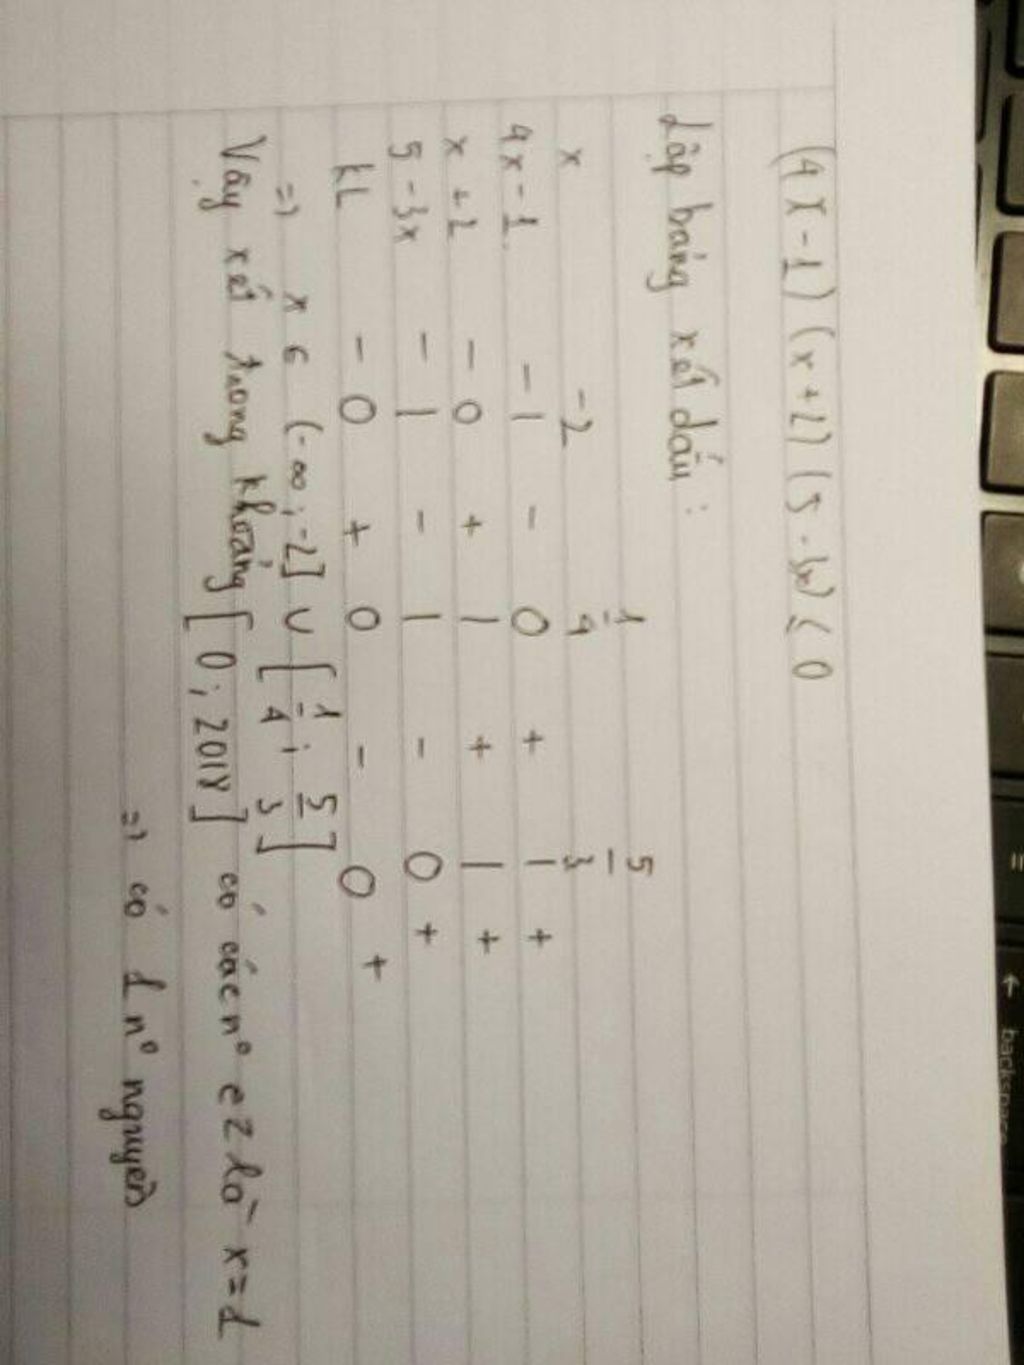 (4x-1)(x+2)(5-3x) ≤ 0
Lập bảng xét dấu :
x -2 1/4 5/3
4x-1 - | - 0 + | +
x+2 - 0 + | + | +
5-3x - | - | - 0 +
kL - 0 + 0 - 0 +
=> x ∈ (-∞; -2] ∪ [1/4; 5/3]
Vậy xét trong khoảng [0; 2018] có các n° ∈ Z là x=1
=> có 1 n° nguyên
backspace